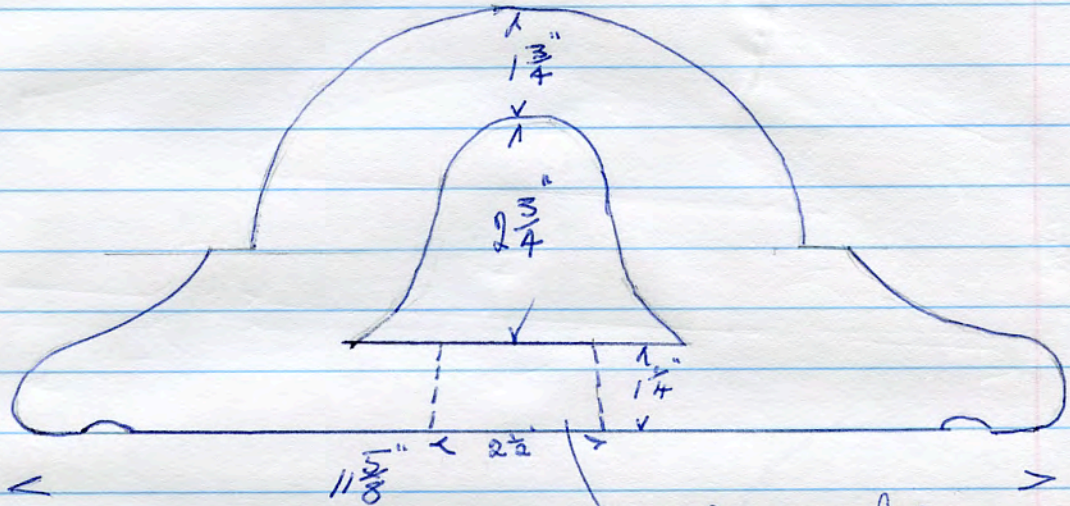 1 3/4"
2 3/4"
1 1/4"
2 1/2"
11 5/8"